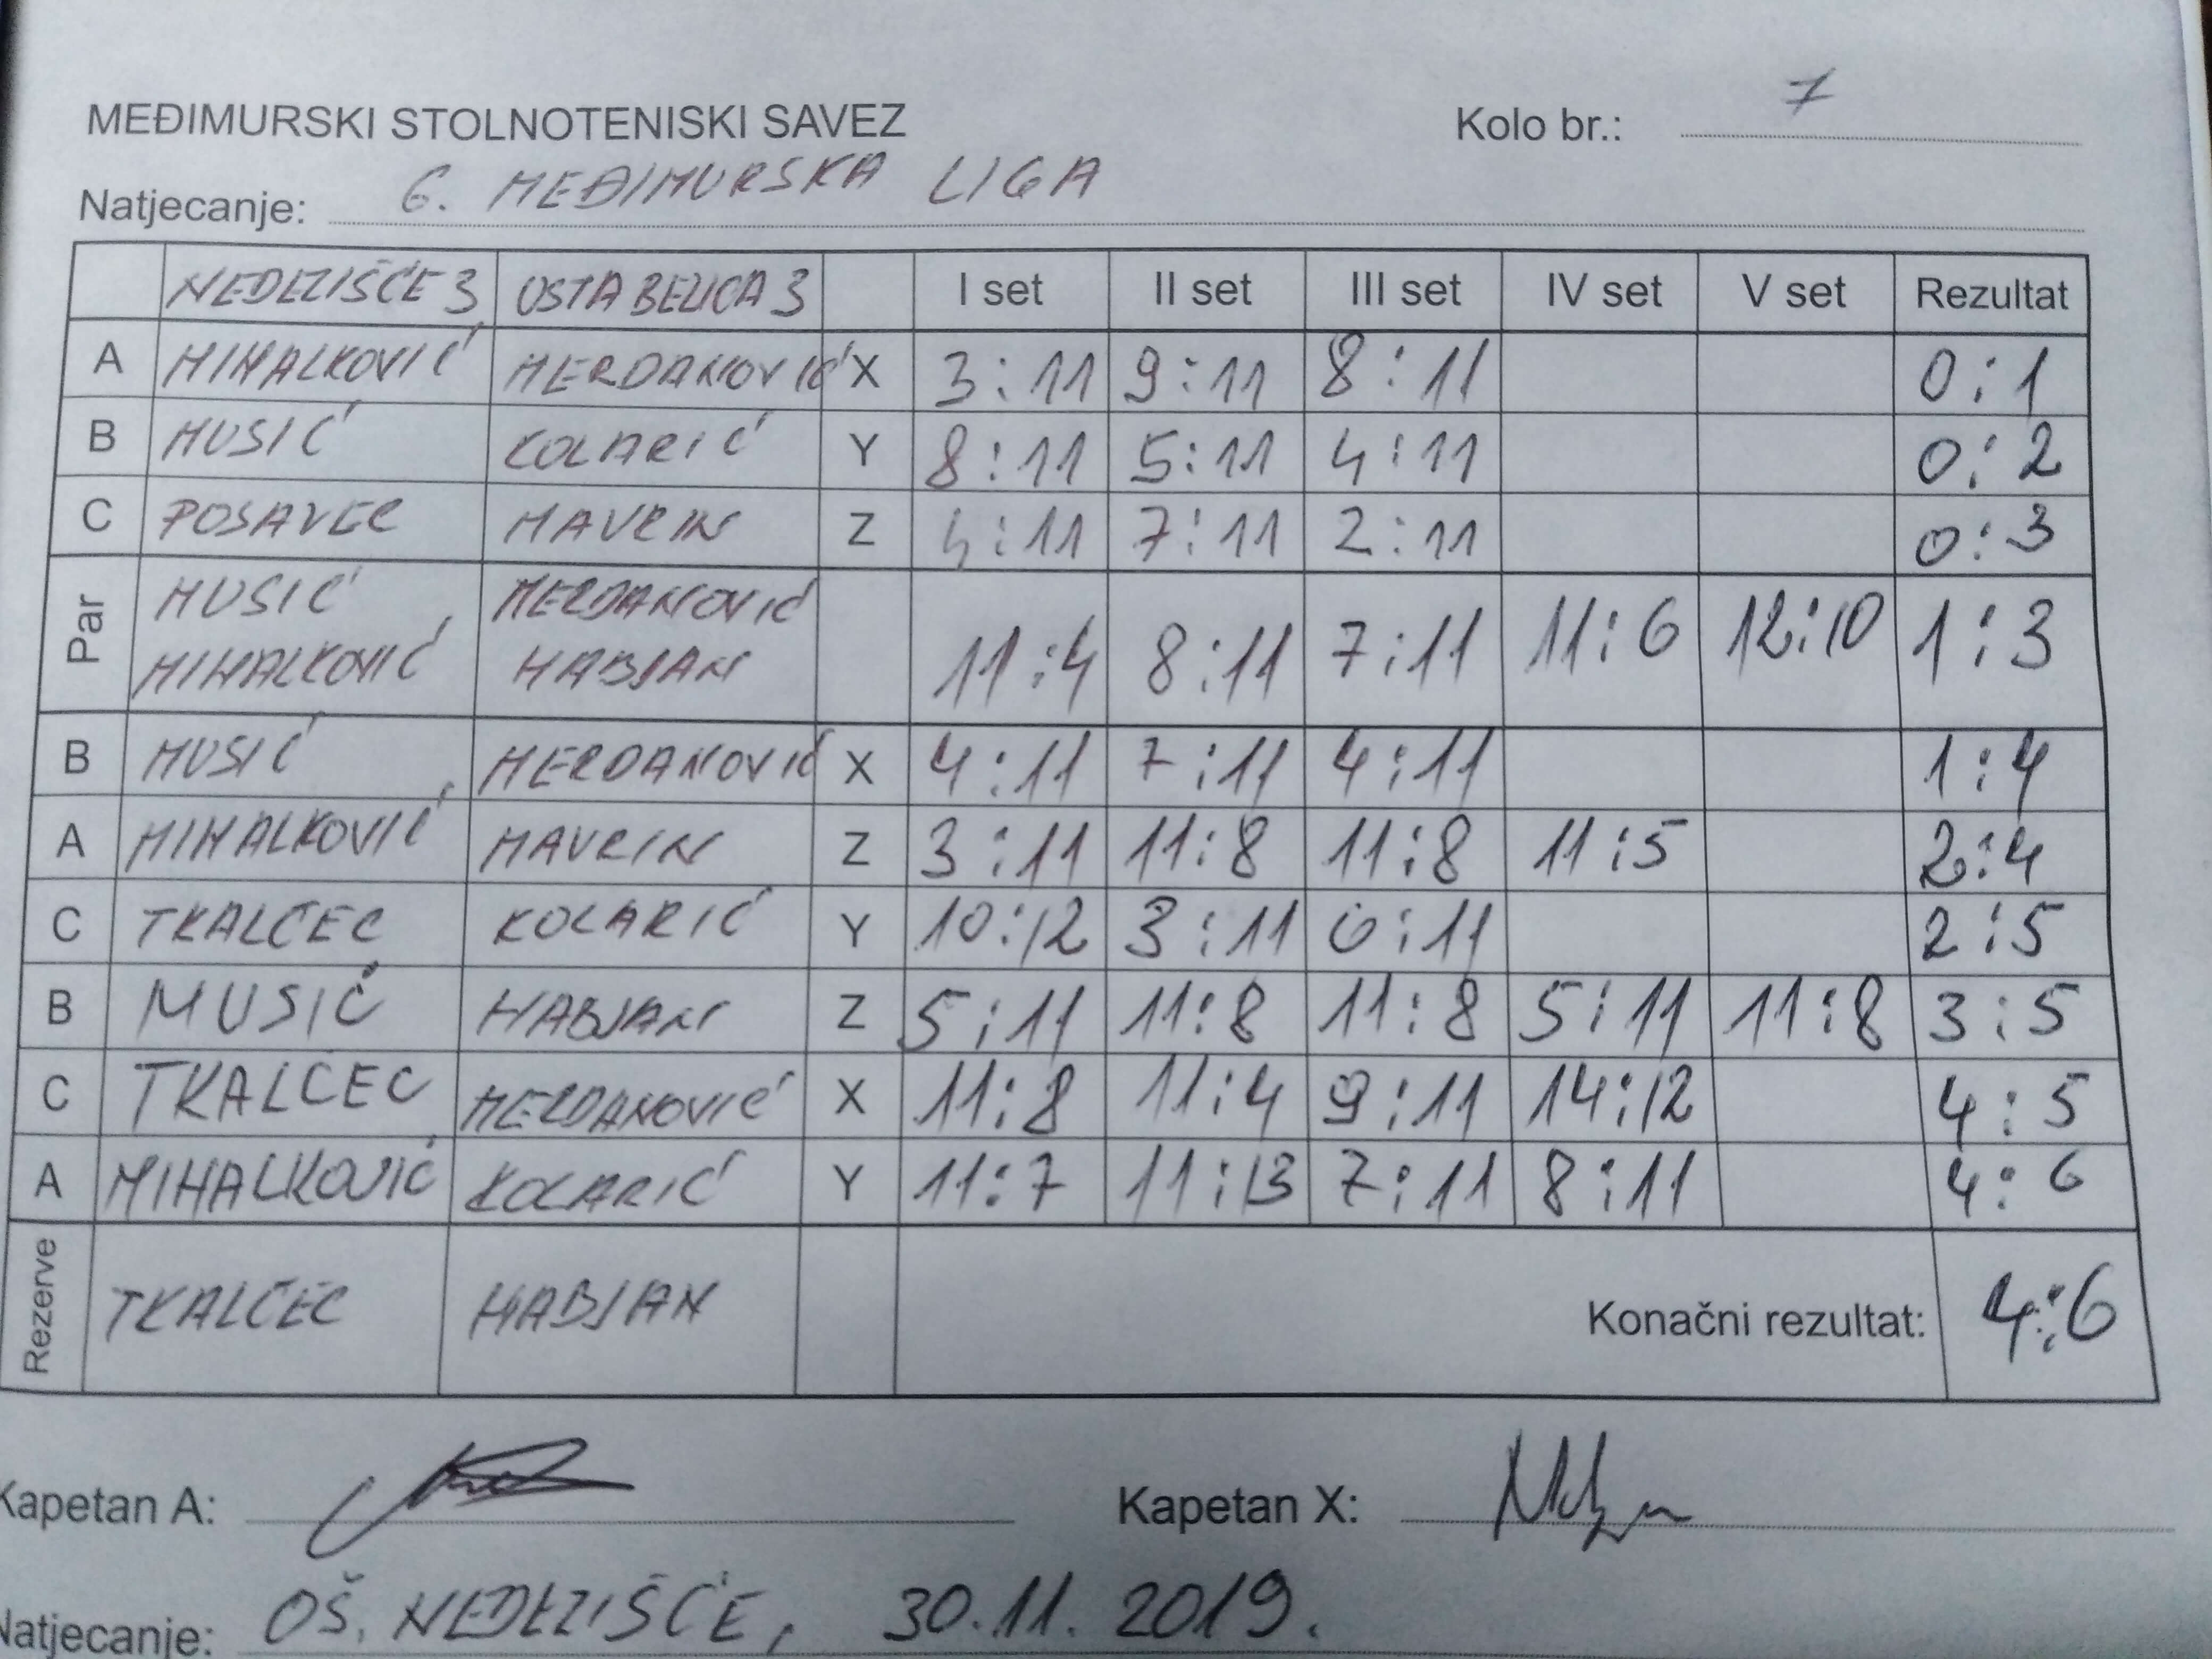 MEĐIMURSKI STOLNOTENISKI SAVEZ Kolo br.: 7
Natjecanje: 6. MEĐIMURSKA LIGA
NEDELIŠĆE 3 OSTA BELICA 3 I set II set III set IV set V set Rezultat
A MIHALKOVIĆ MERDANOVIĆ X 3:11 9:11 8:11 0:1
B MUSIĆ KOLARIĆ Y 8:11 5:11 4:11 0:2
C POSAVEC MAVRIN Z 4:11 7:11 2:11 0:3
Par MUSIĆ MIHALKOVIĆ MERDANOVIĆ HABJAN 11:4 8:11 7:11 11:6 12:10 1:3
B MUSIĆ MERDANOVIĆ X 4:11 7:11 4:11 1:4
A MIHALKOVIĆ MAVRIN Z 3:11 11:8 11:8 11:5 2:4
C TKALČEC KOLARIĆ Y 10:12 3:11 6:11 2:5
B MUSIĆ HABJAN Z 5:11 11:8 11:8 5:11 11:8 3:5
C TKALČEC MERDANOVIĆ X 11:8 11:4 9:11 14:12 4:5
A MIHALKOVIĆ KOLARIĆ Y 11:7 11:13 7:11 8:11 4:6
Rezerve TKALČEC HABJAN Konačni rezultat: 4:6
Kapetan A: Kapetan X:
Natjecanje: OŠ. NEDELIŠĆE, 30.11.2019.